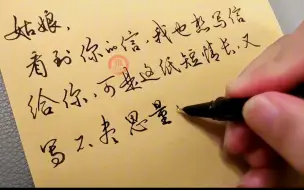 姑娘，
看到你的信，我也想写信
给你，可是这纸短情长，又
写不尽思量